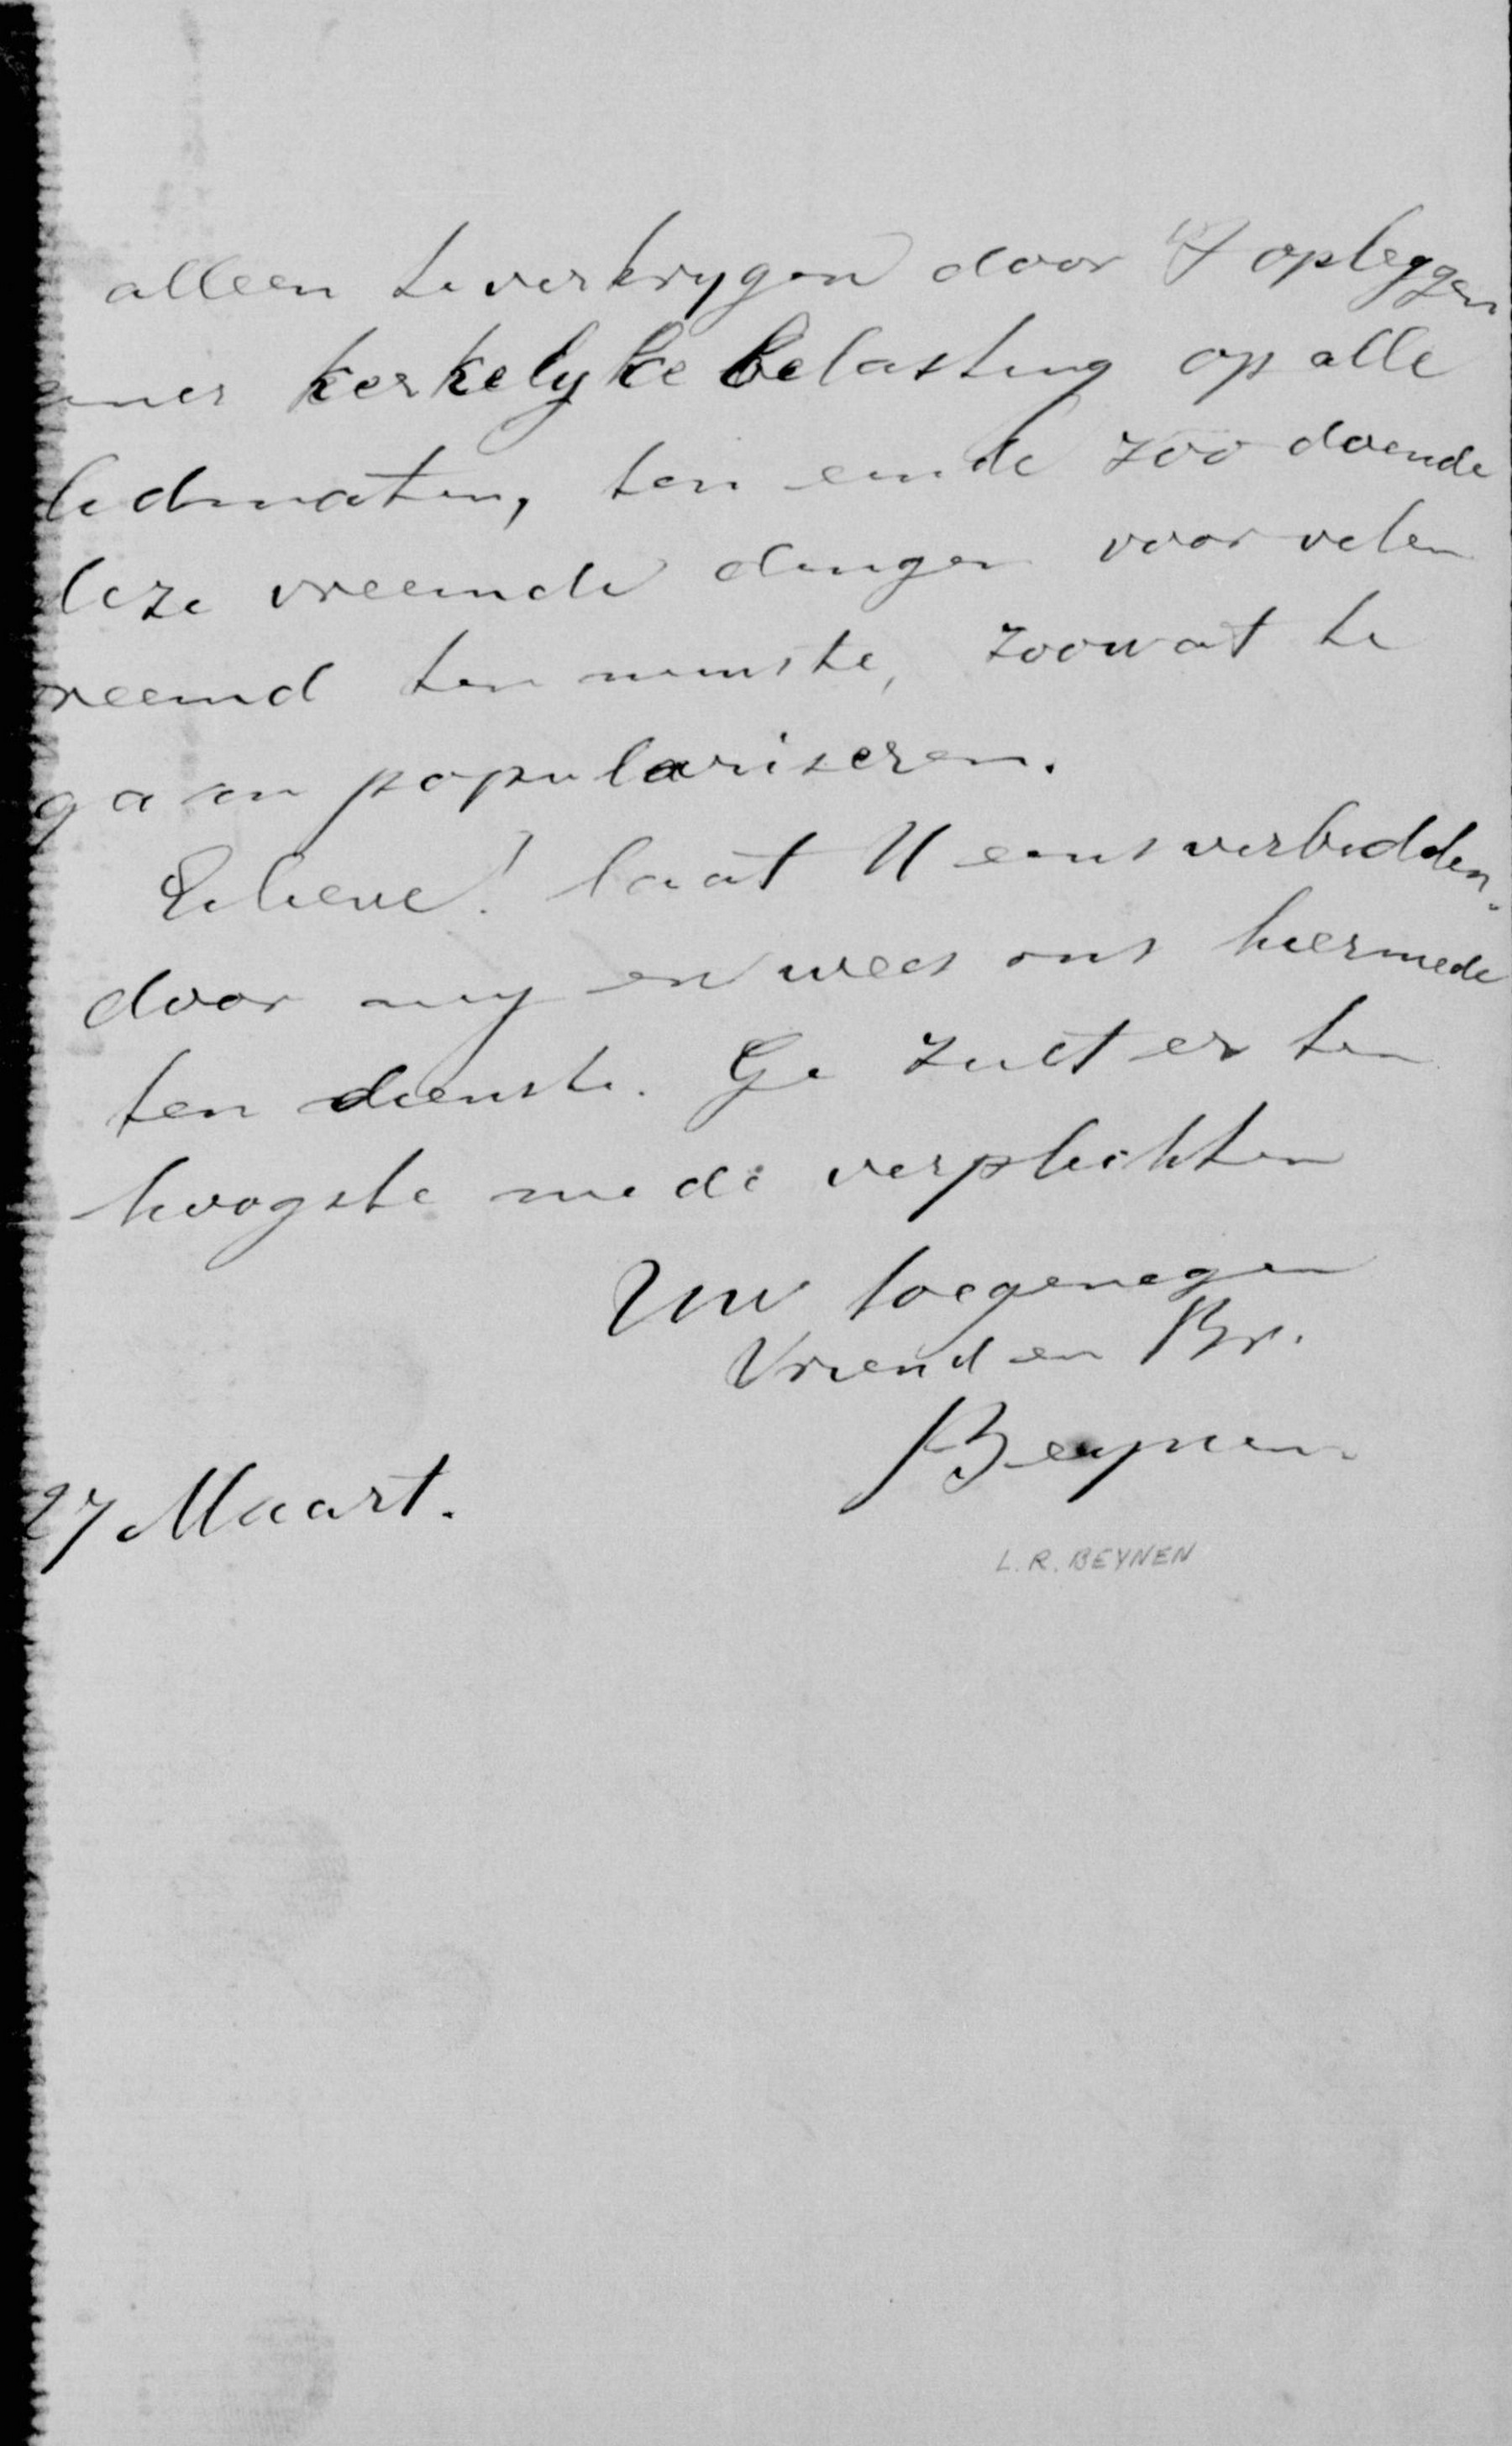 alleen te verkrygen door 't opleggen
eener kerkelyke belasting op alle
ledmaten, ten einde zoo doende
deze vreemde dingen voor velen
vreemd ten minste, zoowat te
gaan populariseren.
Eilieve! laat U eens verbidden
door my en wees ons hiermede
ten dienste. Ge zult er ten
hoogste mede verplichten
Uw toegenegen
Vriend en Br.
Beynen
27 Maart.
L. R. BEYNEN